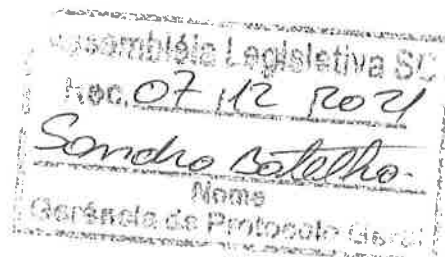 Assembléia Legislativa SC
Rec. 07 / 12 / 2021
Sandro Botelho.
Nome
Gerência de Protocolo Geral